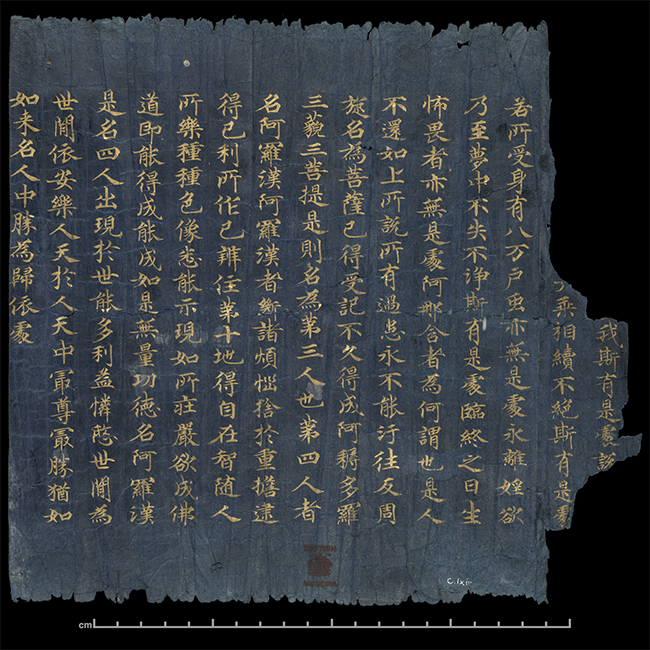 我斯有是處說
乘相續不絕斯有是處
若所受身有八万戶虫亦無是處永離婬欲
乃至夢中不失不淨斯有是處臨終之日生
怖畏者亦無是處阿那含者為何謂也是人
不還如上所說所有過患永不能汙往反周
旋名為菩薩已得受記不久得成阿耨多羅
三藐三菩提是則名為第三人也第四人者
名阿羅漢阿羅漢者斷諸煩惱捨於重擔逮
得己利所作已辦住第十地得自在智隨人
所樂種種色像悉能示現如所莊嚴欲成佛
道即能得成能成如是無量功德名阿羅漢
是名四人出現於世能多利益憐愍世間為
世間依安樂人天於人天中冣尊冣勝猶如
如来名人中勝為歸依處
BRITISH
MUSEUM
cm